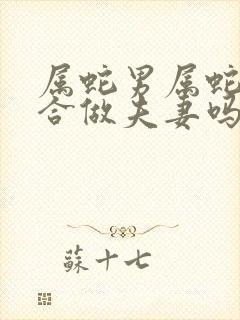 属蛇男属蛇
合做夫妻吗
蘇十七